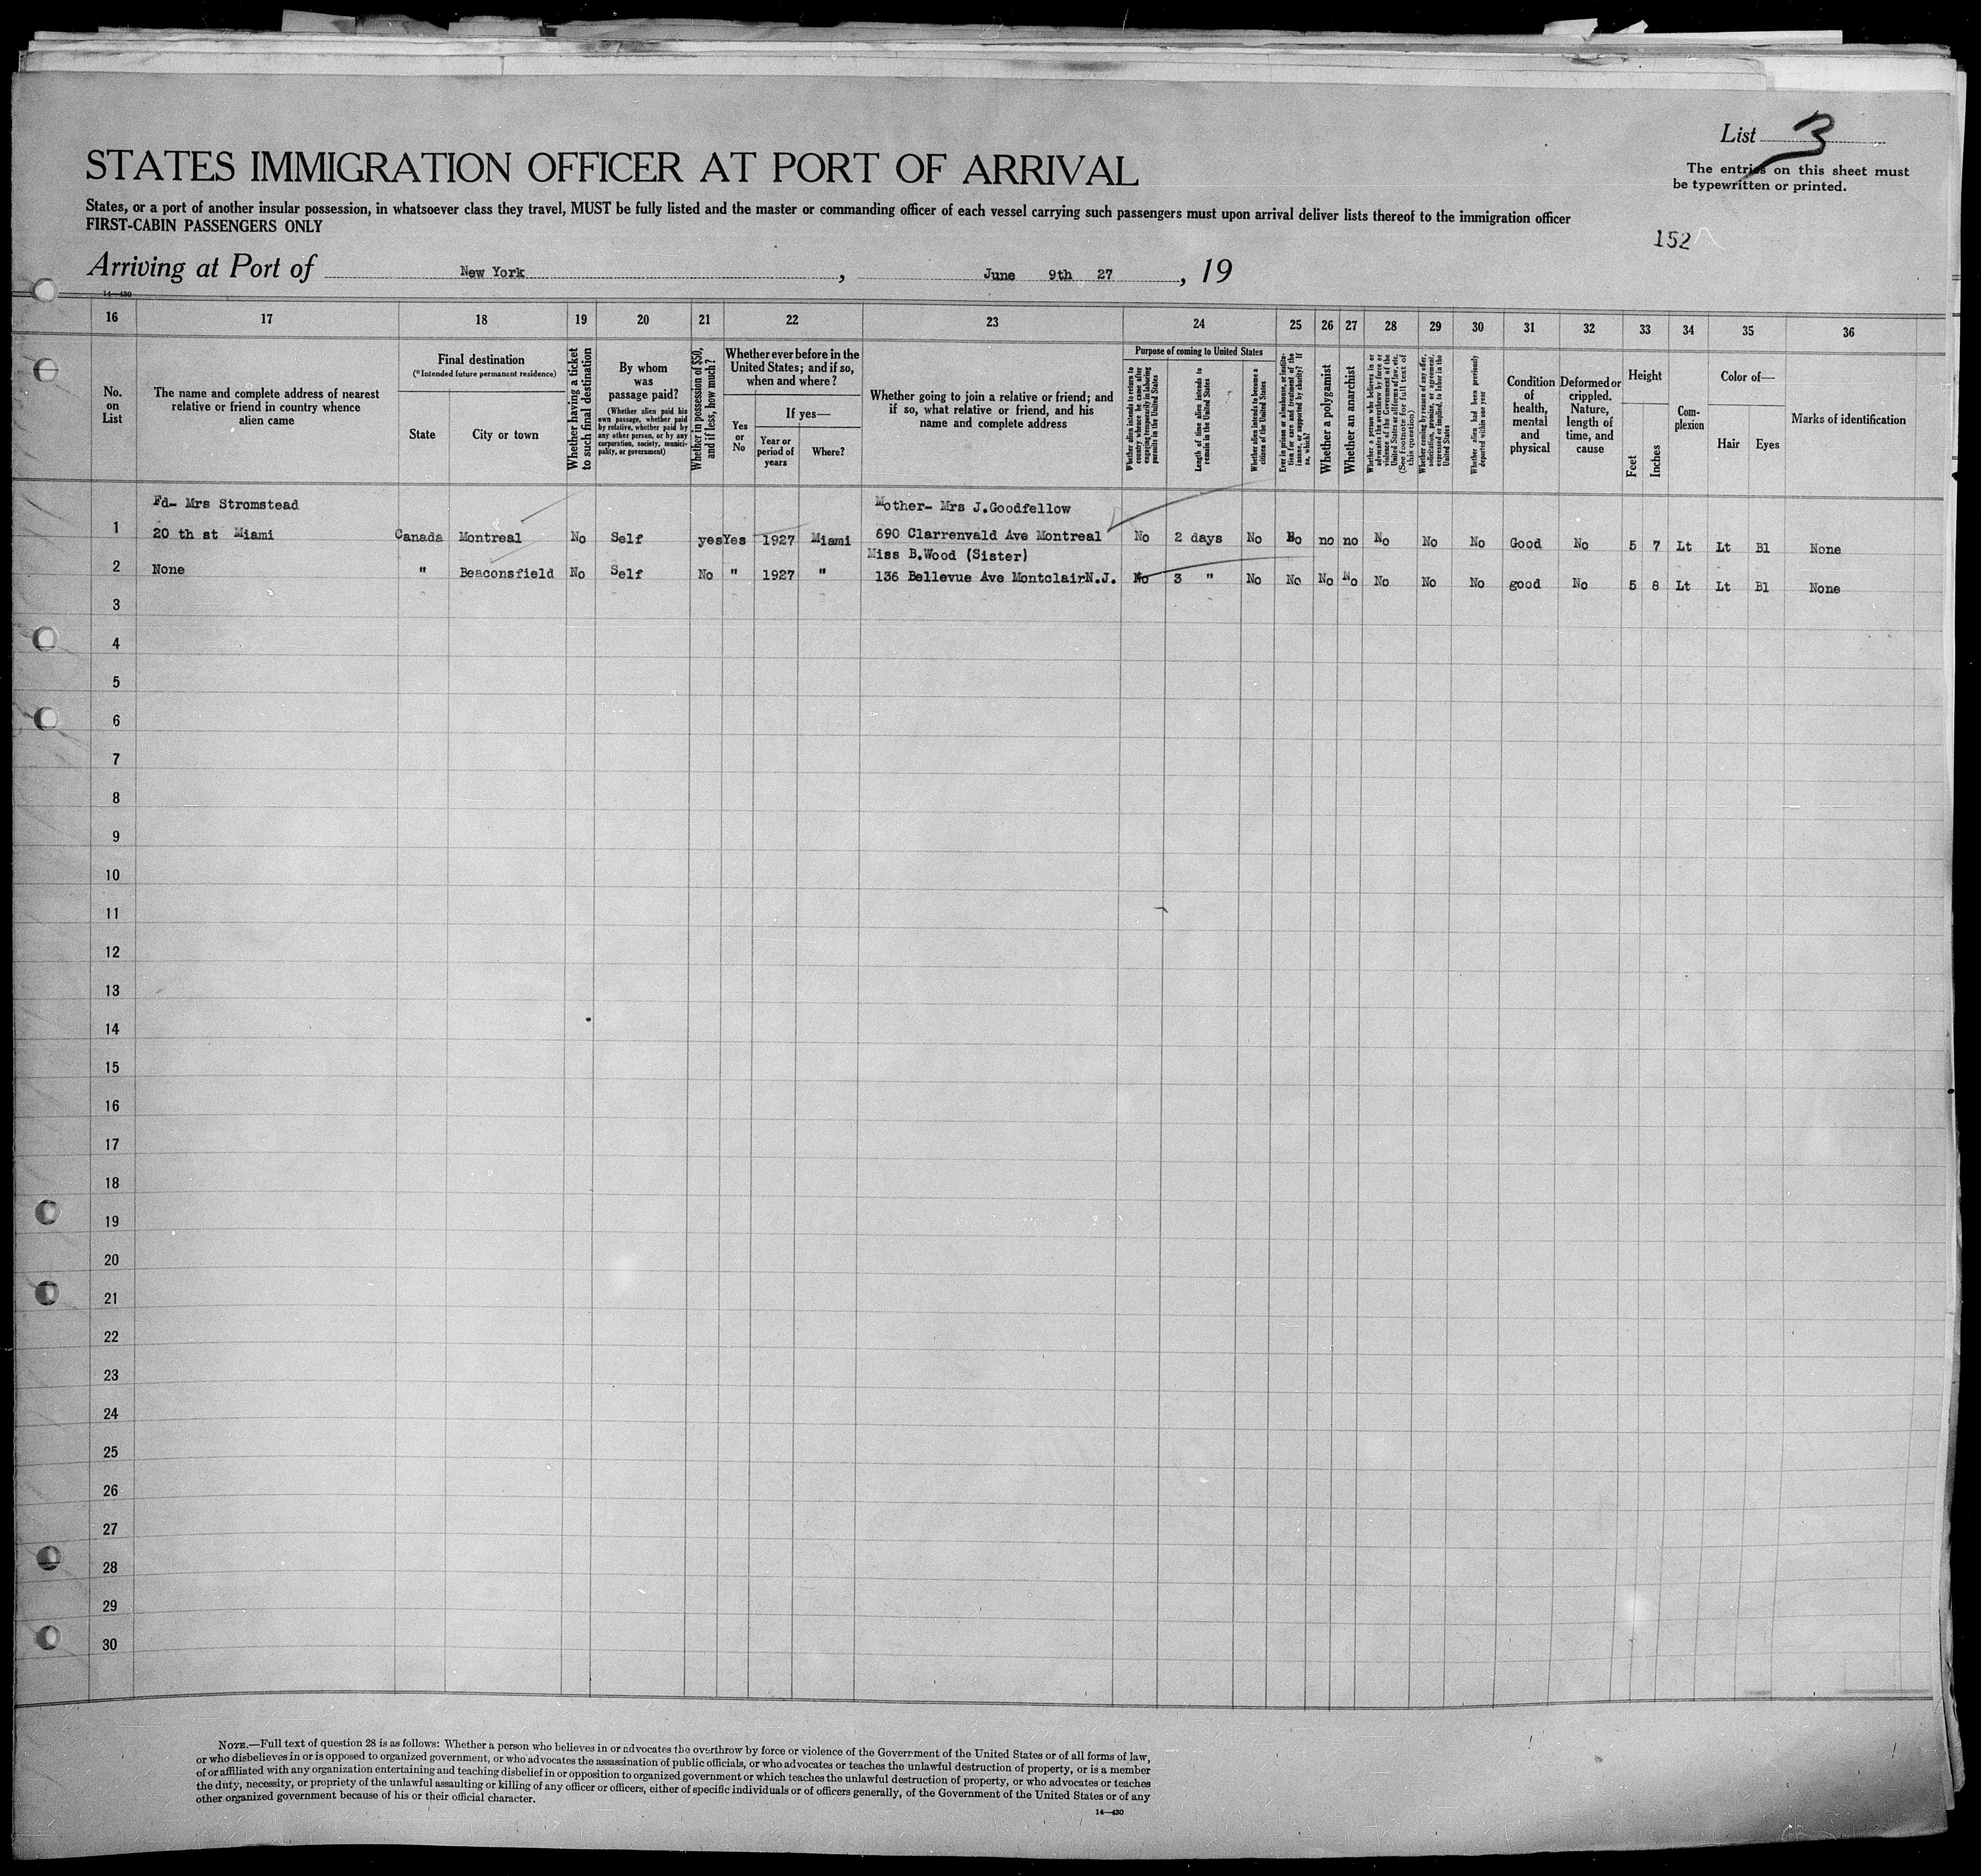 List 3
The entries on this sheet must
be typewritten or printed.
STATES IMMIGRATION OFFICER AT PORT OF ARRIVAL
States, or a port of another insular possession, in whatsoever class they travel, MUST be fully listed and the master or commanding officer of each vessel carrying such passengers must upon arrival deliver lists thereof to the immigration officer
FIRST-CABIN PASSENGERS ONLY
152
Arriving at Port of New York, June 9th 27, 19
14—430
16 17 18 19 20 21 22 23 24 25 26 27 28 29 30 31 32 33 34 35 36
No.
on
List
The name and complete address of nearest
relative or friend in country whence
alien came
Final destination
(*Intended future permanent residence)
State
City or town
Whether having a ticket
to such final destination
By whom
was
passage paid?
(Whether alien paid his
own passage, whether paid
by relative, whether paid by
any other person, or by any
corporation, society, munici-
pality, or government)
Whether in possession of $50,
and if less, how much?
Whether ever before in the
United States; and if so,
when and where?
Yes
or
No
If yes—
Year or
period of
years
Where?
Whether going to join a relative or friend; and
if so, what relative or friend, and his
name and complete address
Purpose of coming to United States
Whether alien intends to return to
country whence he came after
engaging temporarily in laboring
pursuits in the United States
Length of time alien intends to
remain in the United States
Whether alien intends to become a
citizen of the United States
Ever in prison or almshouse, or institu-
tion for care and treatment of the
insane, or supported by charity? If
so, which?
Whether a polygamist
Whether an anarchist
Whether a person who believes in or
advocates the overthrow by force or
violence of the Government of the
United States or all forms of law, etc.
(See footnote for full text of
this question)
Whether coming by reason of any offer,
solicitation, promise, or agreement,
expressed or implied, to labor in the
United States
Whether alien had been previously
deported within one year
Condition
of
health,
mental
and
physical
Deformed or
crippled.
Nature,
length of
time, and
cause
Height
Feet
Inches
Com-
plexion
Color of—
Hair
Eyes
Marks of identification
Fd- Mrs Stromstead Mother- Mrs J.Goodfellow
1 20 th st Miami Canada Montreal No Self yes Yes 1927 Miami 690 Clarrenvald Ave Montreal No 2 days No No no no No No No Good No 5 7 Lt Lt Bl None
Miss B.Wood (Sister)
2 None " Beaconsfield No Self No " 1927 " 136 Bellevue Ave Montclair N.J. No 3 " No No No No No No No good No 5 8 Lt Lt Bl None
3
4
5
6
7
8
9
10
11
12
13
14
15
16
17
18
19
20
21
22
23
24
25
26
27
28
29
30
NOTE.—Full text of question 28 is as follows: Whether a person who believes in or advocates the overthrow by force or violence of the Government of the United States or of all forms of law,
or who disbelieves in or is opposed to organized government, or who advocates the assassination of public officials, or who advocates or teaches the unlawful destruction of property, or is a member
of or affiliated with any organization entertaining and teaching disbelief in or opposition to organized government or which teaches the unlawful destruction of property, or who advocates or teaches
the duty, necessity, or propriety of the unlawful assaulting or killing of any officer or officers, either of specific individuals or of officers generally, of the Government of the United States or of any
other organized government because of his or their official character.
14—430